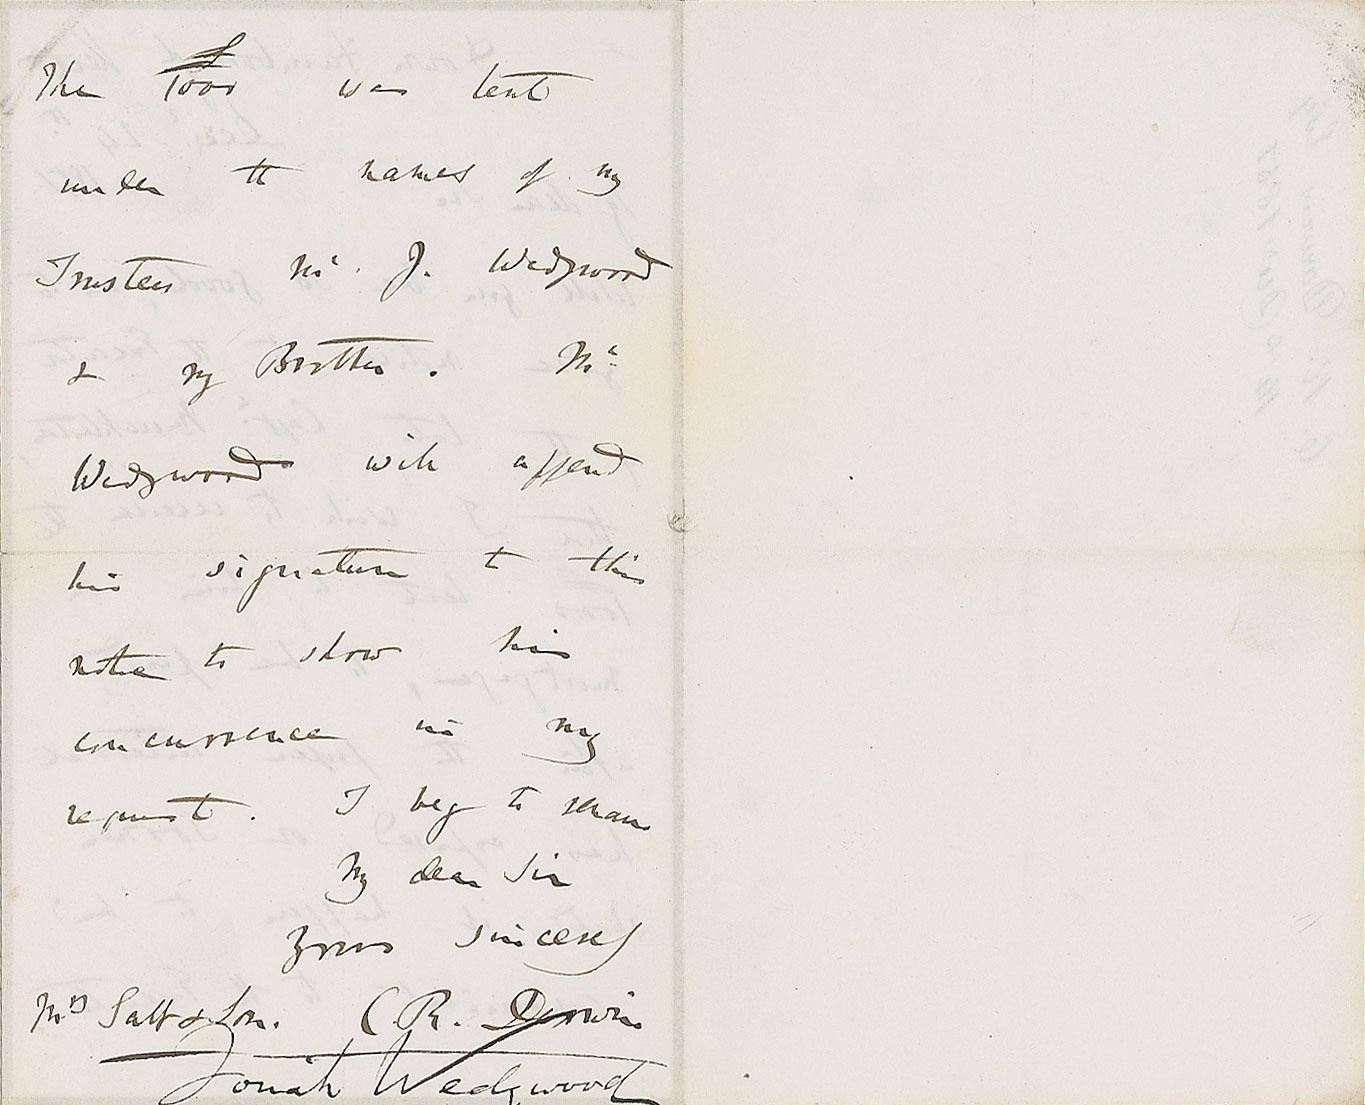 The £1000 was lent
under the names of my
Trustees Mr. J. Wedgwood
& my Brother. Mr
Wedgwood will append
his signature to this
note to show his
concurrence in my
request. I beg to remain
My dear Sir
Yours sincerely
Mrs Salt & Son. C. R. Darwin
Josiah Wedgwood